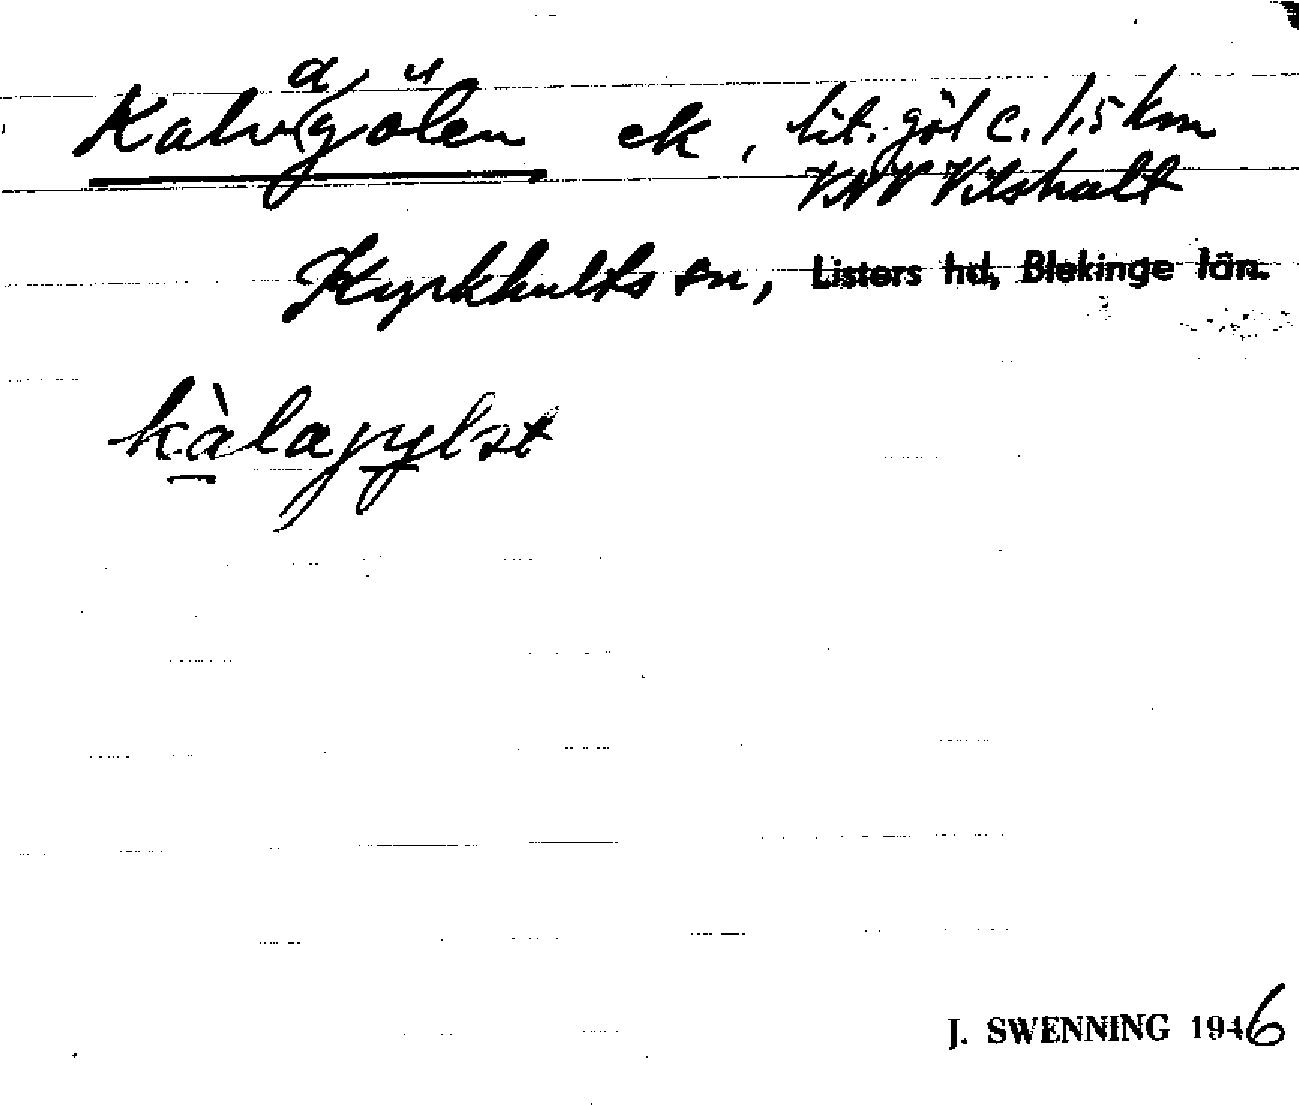 Kalv(a)gölen ek, lit. göl c. 1,5 km
VNV Vilshult
Kyrkhults sn, Listers hd, Blekinge län.
kàlajylst
J. SWENNING 1946